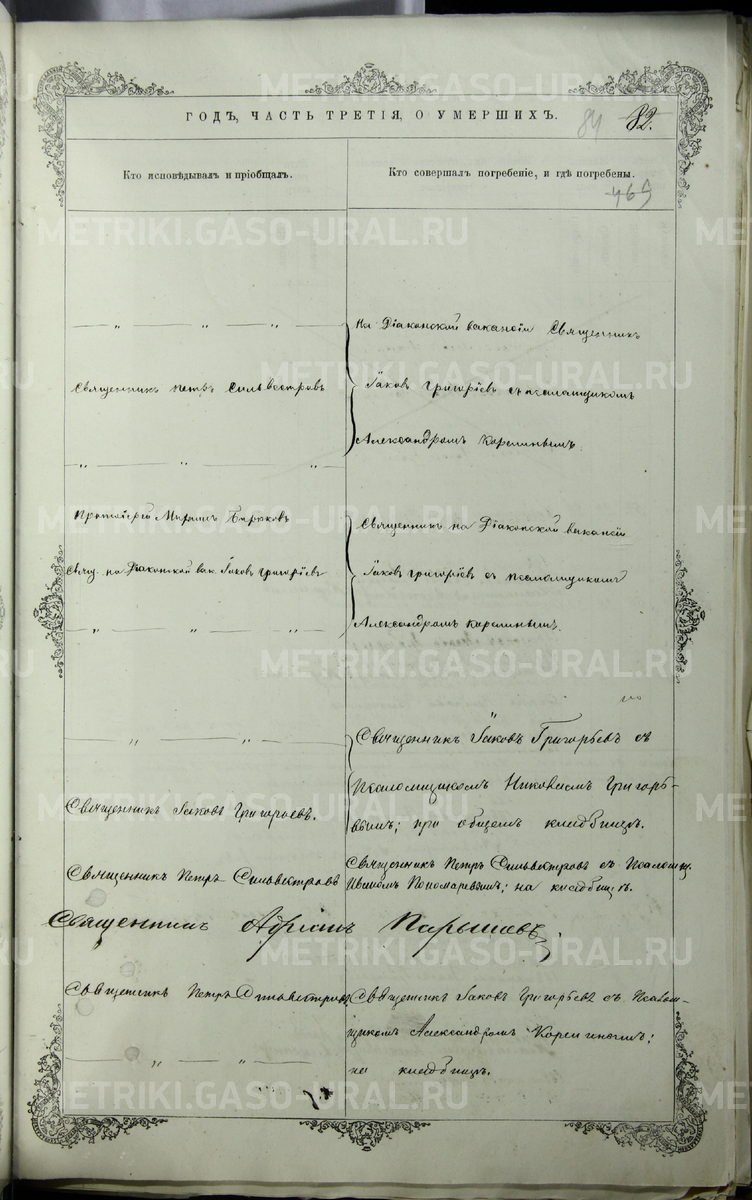 ГОДЪ, ЧАСТЬ ТРЕТІЯ, О УМЕРШИХЪ.
84 82.
Кто исповѣдывалъ и пріобщалъ.
Кто совершалъ погребеніе, и гдѣ погребены.
469
— „ — „ — „ —
На Діаконской вакансіи Священникъ
Священникъ Петръ Сильвестровъ
Іаковъ Григоріевъ съ псаломщикомъ
Александромъ Корелинымъ.
— „ — „ — „
Протоіерей Миронъ Бирюковъ
Священникъ на Діаконской вакансіи
Свящ. на Діаконской вак. Іаковъ Григоріевъ
Іаковъ Григоріевъ съ псаломщикомъ
— „ — „ — „ —
Александромъ Корелинымъ.
— „ — „ —
Священникъ Іаковъ Григорьевъ съ
Псаломщикомъ Николаемъ Григорь-
Священникъ Іаковъ Григорьевъ.
евымъ; при общемъ кладбищѣ.
Священникъ Петръ Сильвестровъ
Священникъ Петръ Сильвестровъ съ Псаломщ.
Иваномъ Пономаревымъ; на кладбищѣ.
Священникъ Адріанъ Парышевъ
Священникъ Петръ Сильвестровъ.
Священникъ Іаковъ Григорьевъ съ Псалом-
щикомъ Александромъ Корелинымъ;
— „ — „ —
на кладбищѣ.
METRIKI.GASO-URAL.RU